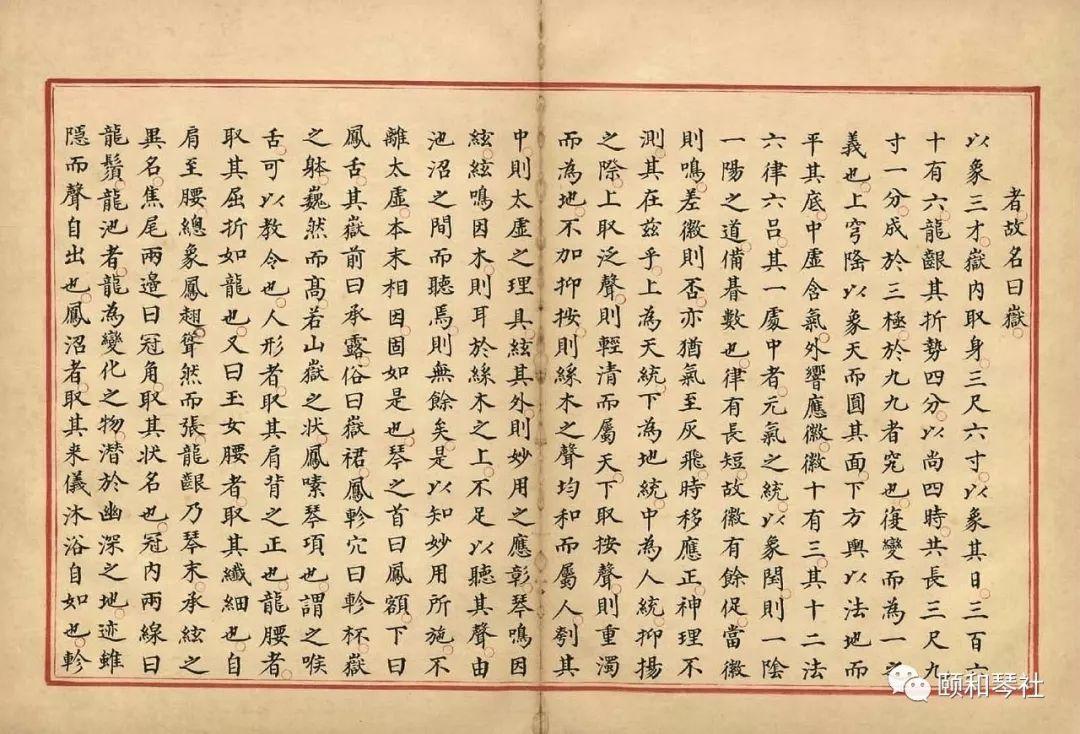 者故名曰嶽
以象三才嶽內取身三尺六寸以象其日三百六
十有六龍齦其折勢四分以尚四時共長三尺九
寸一分成於三極於九九者究也復變而為一之
義也上穹隆以象天而圓其面下方輿以法地而
平其底中虛含氣外響應徽徽十有三其十二法
六律六呂其一處中者元氣之統以象閏則一陰
一陽之道備朞數也律有長短故徽有餘促當徽
則鳴差徽則否亦猶氣至灰飛時移應正神理不
測其在茲乎上為天統下為地統中為人統抑揚
之際上取泛聲則輕清而屬天下取按聲則重濁
而為地不加抑按則絲木之聲均和而屬人刳其
中則太虛之理具絃其外則妙用之應彰琴鳴因
絃絃鳴因木則耳於絲木之上不足以聽其聲由
池沼之間而聽焉則無餘矣是以知妙用所施不
離太虛本末相因固如是也琴之首曰鳳額下曰
鳳舌其嶽前曰承露俗曰嶽裙鳳軫穴曰軫杯嶽
之躰巍然而高若山嶽之状鳳嗉琴項也謂之喉
舌可以教令也人形者取其肩背之正也龍腰者
取其屈折如龍也又曰玉女腰者取其纖細也自
肩至腰總象鳳翅聳然而張龍齦乃琴末承絃之
異名焦尾兩邊曰冠角取其状名也冠內兩線曰
龍鬚龍池者龍為變化之物潛於幽深之地迹雖
隱而聲自出也鳳沼者取其来儀沐浴自如也軫
颐和琴社